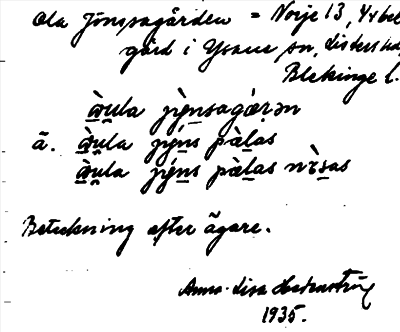 Ola Jönsagården = Norje 13, 4xbel
gård i Ysane sn, Listers hd,
Blekinge l.
ὰu̯la jỳnsagáṛən
ä. ὰu̯la jýns pàlas
ὰu̯la jýns pàlas nìsas
Beteckning efter ägare.
Anna-Lisa
1935.